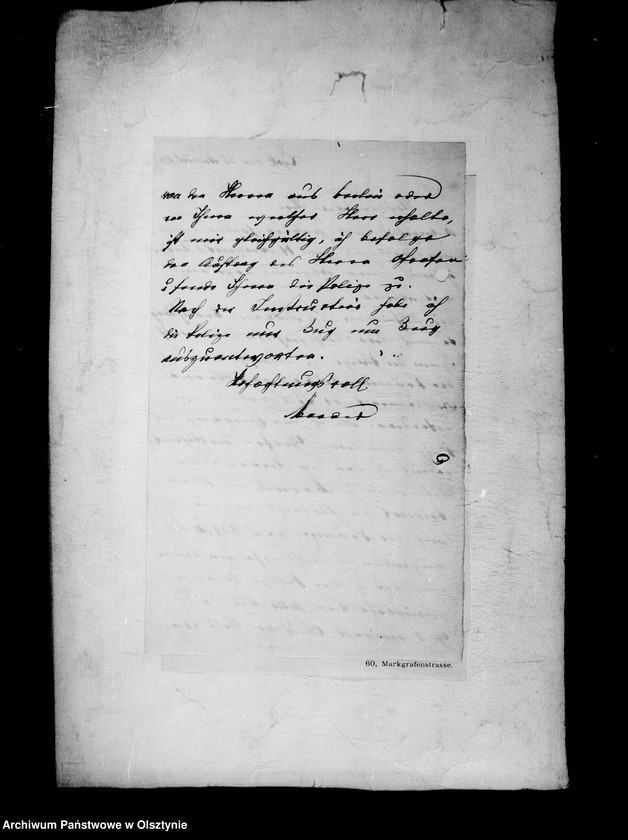 von den Herren aus Berlin oder
von Ihnen welcher Herr erhalte,
ist mir gleichgültig, ich befolge
den Auftrag des Herrn Grafen
u sende Ihnen die Polize zu.
Nach der Instruction habe ich
die Polize nur Zug um Zug
auszuantworten.
Hochachtungsvoll
60, Markgrafenstrasse.
Archiwum Państwowe w Olsztynie